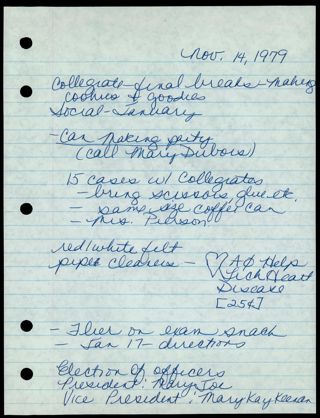 Nov. 14, 1979
Collegiate - final breaks - making
cookies & goodies
Social - January
- Can Making party
(call Mary Dubois)
15 cases w/ Collegiates
- bring scissors, glue, etc.
- same size coffee can
- Mrs. Pierson
red/white felt
pipe cleaners - ♡ AØ Help
Heart
Disease
[25¢]
- Flier on exam snack
- Jan 17 - directions
Election of officers
President: Mary Joe
Vice President: Mary Kay Keenan